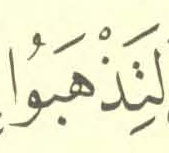 لِتَذْهَبُوا